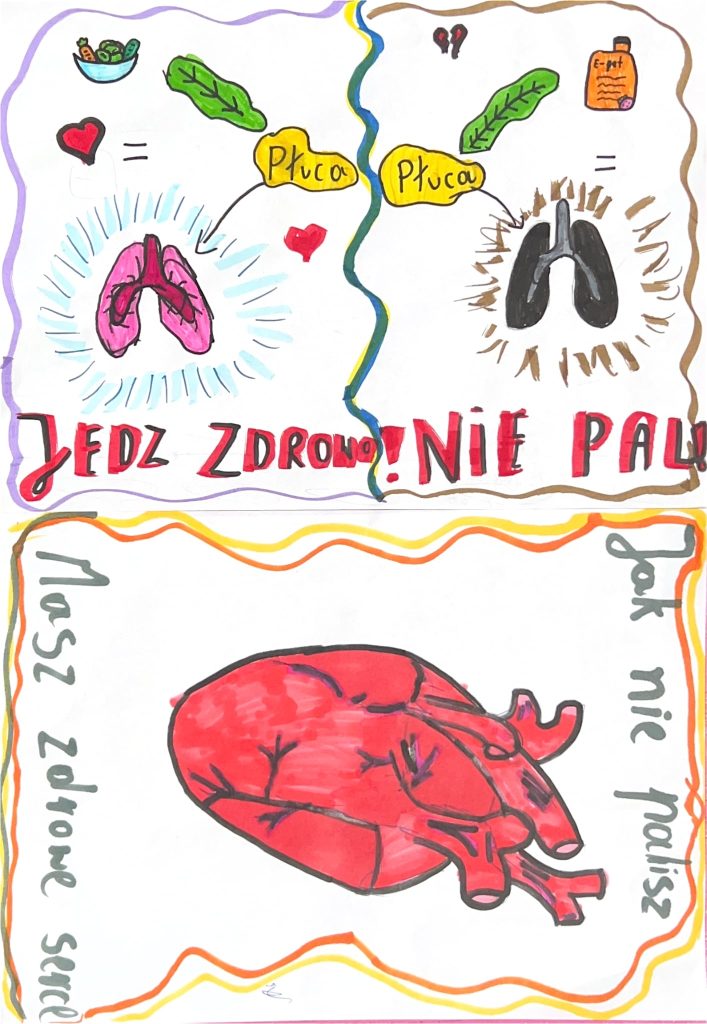 E-pet
Płuca
Płuca
JEDZ ZDROWO! NIE PAL!
Jak nie palisz
Masz zdrowe serce